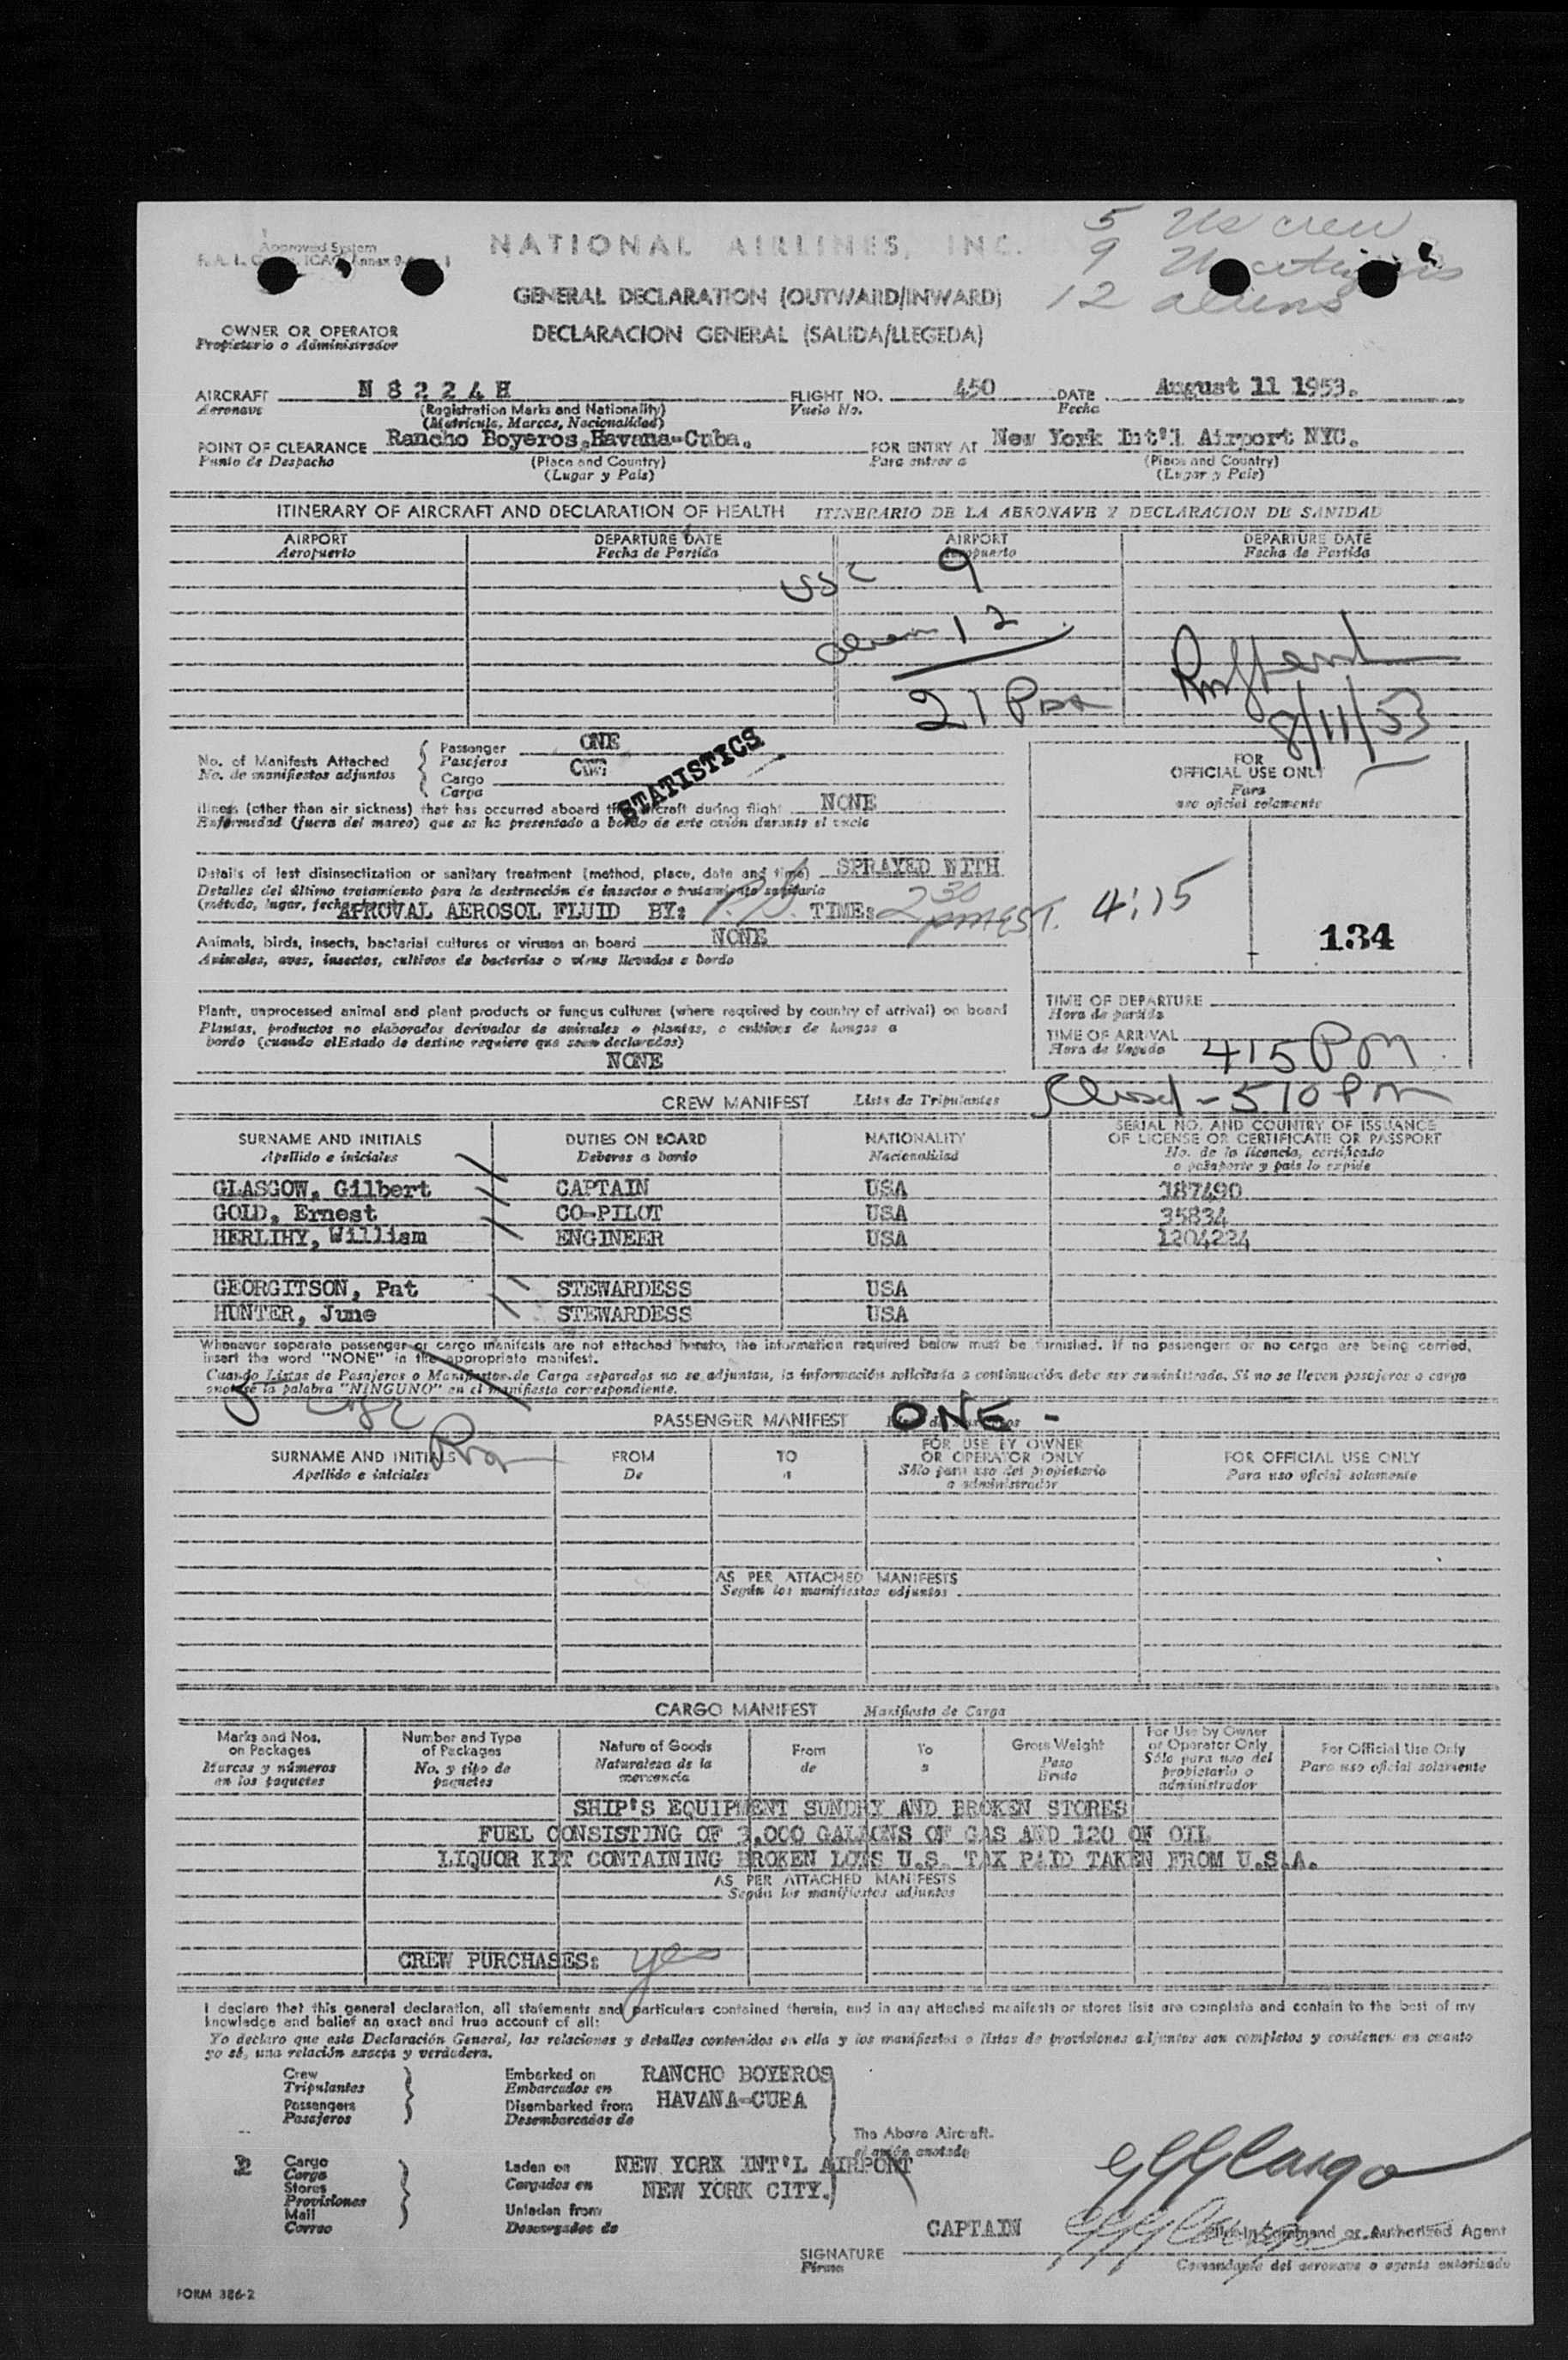 5 US crew
9 US citizens
12 aliens
Approved System
NATIONAL AIRLINES, INC.
GENERAL DECLARATION (OUTWARD/INWARD)
DECLARACION GENERAL (SALIDA/LLEGEDA)
OWNER OR OPERATOR
Propietario o Administrador
AIRCRAFT N 8 2 2 4 H FLIGHT NO. 450 DATE August 11 1953.
Aeronave (Registration Marks and Nationality) Vuelo No. Fecha
(Matricula, Marcas, Nacionalidad)
POINT OF CLEARANCE Rancho Boyeros,Havana-Cuba. FOR ENTRY AT New York Int'l Airport NYC.
Punto de Despacho (Place and Country) Para entrar a (Place and Country)
(Lugar y País) (Lugar y País)
ITINERARY OF AIRCRAFT AND DECLARATION OF HEALTH ITINERARIO DE LA AERONAVE Y DECLARACION DE SANIDAD
AIRPORT DEPARTURE DATE AIRPORT DEPARTURE DATE
Aeropuerto Fecha de Partida Aeropuerto Fecha de Partida
USC 9
12
21 Pax
8/11/53
No. of Manifests Attached Passenger ONE
No. de manifiestos adjuntos Pasajeros
Cargo
Carga
STATISTICS
FOR
OFFICIAL USE ONLY
Para
uso oficial solamente
Illness (other than air sickness) that has occurred aboard the aircraft during flight NONE
Enfermedad (fuera del mareo) que se ha presentado a bordo de este avión durante el vuelo
Details of last disinsectization or sanitary treatment (method, place, date and time) SPRAYED WITH
Detalles del último tratamiento para la destrucción de insectos o tratamiento sanitario
(método, lugar, fecha
APROVAL AEROSOL FLUID BY: TIME: 2 30 pm EST.
4:15
134
Animals, birds, insects, bacterial cultures or viruses on board NONE
Animales, aves, insectos, cultivos de bacterias o virus llevados a bordo
Plants, unprocessed animal and plant products or fungus cultures (where required by country of arrival) on board
Plantas, productos no elaborados derivados de animales o plantas, o cultivos de hongos a
bordo (cuando elEstado de destino requiere que sean declarados)
NONE
TIME OF DEPARTURE
Hora de partida
TIME OF ARRIVAL 415 PM
Hora de llegada
Closed - 510 PM
CREW MANIFEST Lista de Tripulantes
SURNAME AND INITIALS DUTIES ON BOARD NATIONALITY SERIAL NO. AND COUNTRY OF ISSUANCE
OF LICENSE OR CERTIFICATE OR PASSPORT
Apellido e iniciales Deberes a bordo Nacionalidad No. de la licencia, certificado
o pasaporte y país lo expide
GLASGOW, Gilbert CAPTAIN USA 187490
GOLD, Ernest CO-PILOT USA 35834
HERLIHY, William ENGINEER USA 1204224
GEORGITSON, Pat STEWARDESS USA
HUNTER, June STEWARDESS USA
Whenever separate passenger or cargo manifests are not attached hereto, the information required below must be furnished. If no passengers or no cargo are being carried,
insert the word "NONE" in the appropriate manifest.
Cuando Listas de Pasajeros o Manifiestos de Carga separados no se adjuntan, la información solicitada a continuación debe ser suministrada. Si no se lleven pasajeros o carga
anotese la palabra "NINGUNO" en el manifiesto correspondiente.
5 USC
PASSENGER MANIFEST ONE -
SURNAME AND INITIALS FROM TO FOR USE BY OWNER
OR OPERATOR ONLY FOR OFFICIAL USE ONLY
Apellido e iniciales De a Sólo para uso del propietario
o administrador Para uso oficial solamente
AS PER ATTACHED MANIFESTS
Según los manifiestos adjuntos
CARGO MANIFEST Manifiesto de Carga
Marks and Nos.
on Packages
Marcas y números
en los paquetes
Number and Type
of Packages
No. y tipo de
paquetes
Nature of Goods
Naturaleza de la
mercancía
From
de
To
a
Gross Weight
Peso
Bruto
For Use by Owner
or Operator Only
Sólo para uso del
propietario o
administrador
For Official Use Only
Para uso oficial solamente
SHIP'S EQUIPMENT SUNDRY AND BROKEN STORES
FUEL CONSISTING OF 3,000 GALLONS OF GAS AND 120 OF OIL
LIQUOR KIT CONTAINING BROKEN LOTS U.S. TAX PAID TAKEN FROM U.S.A.
AS PER ATTACHED MANIFESTS
Según los manifiestos adjuntos
CREW PURCHASES: yes
I declare that this general declaration, all statements and particulars contained therein, and in any attached manifests or stores lists are complete and contain to the best of my
knowledge and belief an exact and true account of all:
Yo declaro que esta Declaración General, las relaciones y detalles contenidos en ella y los manifiestos o listas de provisiones adjuntos son completos y contienen en cuanto
yo sé, una relación exacta y verdadera.
Crew Embarked on RANCHO BOYEROS
Tripulantes Embarcados en
Passengers Disembarked from HAVANA-CUBA
Pasajeros Desembarcados de
The Above Aircraft.
el avión anotado
2 Cargo Laden on NEW YORK INT'L AIRPORT
Carga Cargados en NEW YORK CITY.
Stores
Provisiones
Mail Unladen from
Correo Descargados de
CAPTAIN Pilot-in-Command or Authorized Agent
SIGNATURE
Firma Comandante del aeronave o agente autorizado
FORM 386-2